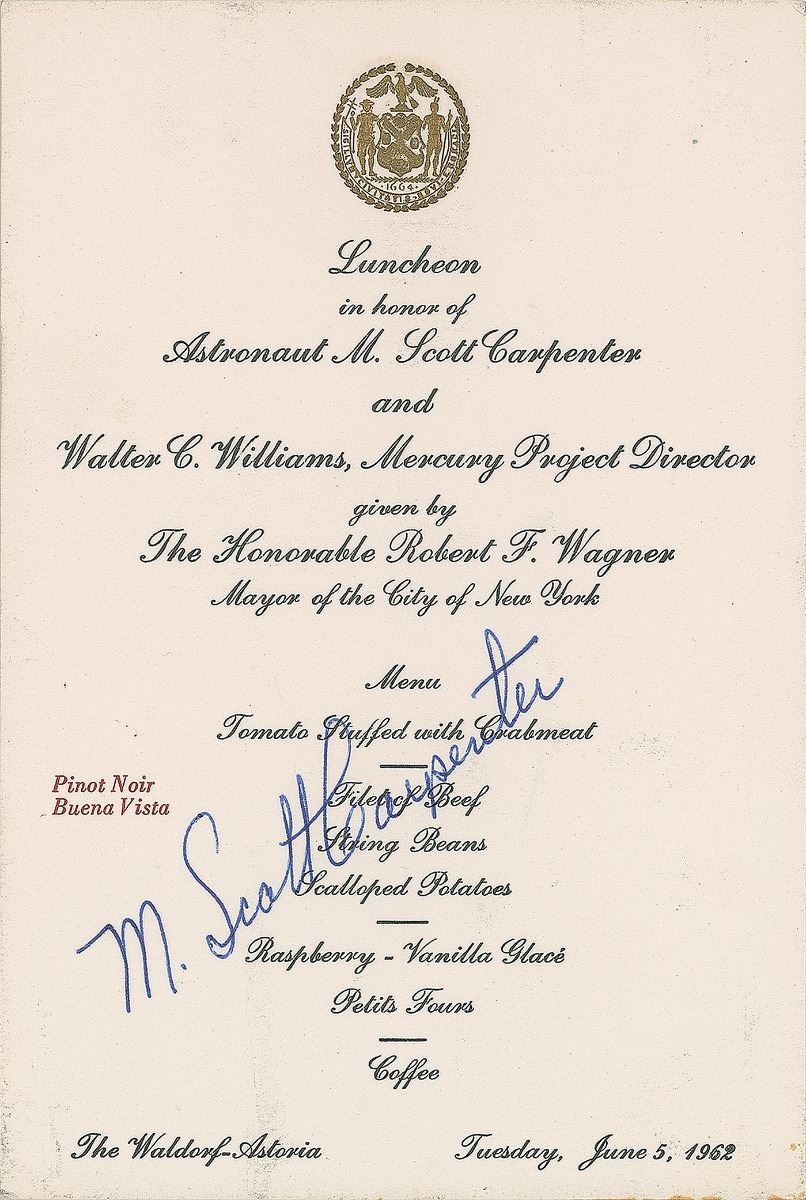 SIGILLVM CIVITATIS NOVI EBORACI
1664
Luncheon
in honor of
Astronaut M. Scott Carpenter
and
Walter C. Williams, Mercury Project Director
given by
The Honorable Robert F. Wagner
Mayor of the City of New York
Menu
Tomato Stuffed with Crabmeat
Pinot Noir
Buena Vista
Filet of Beef
String Beans
Scalloped Potatoes
M. Scott Carpenter
Raspberry - Vanilla Glacé
Petits Fours
Coffee
The Waldorf-Astoria
Tuesday, June 5, 1962